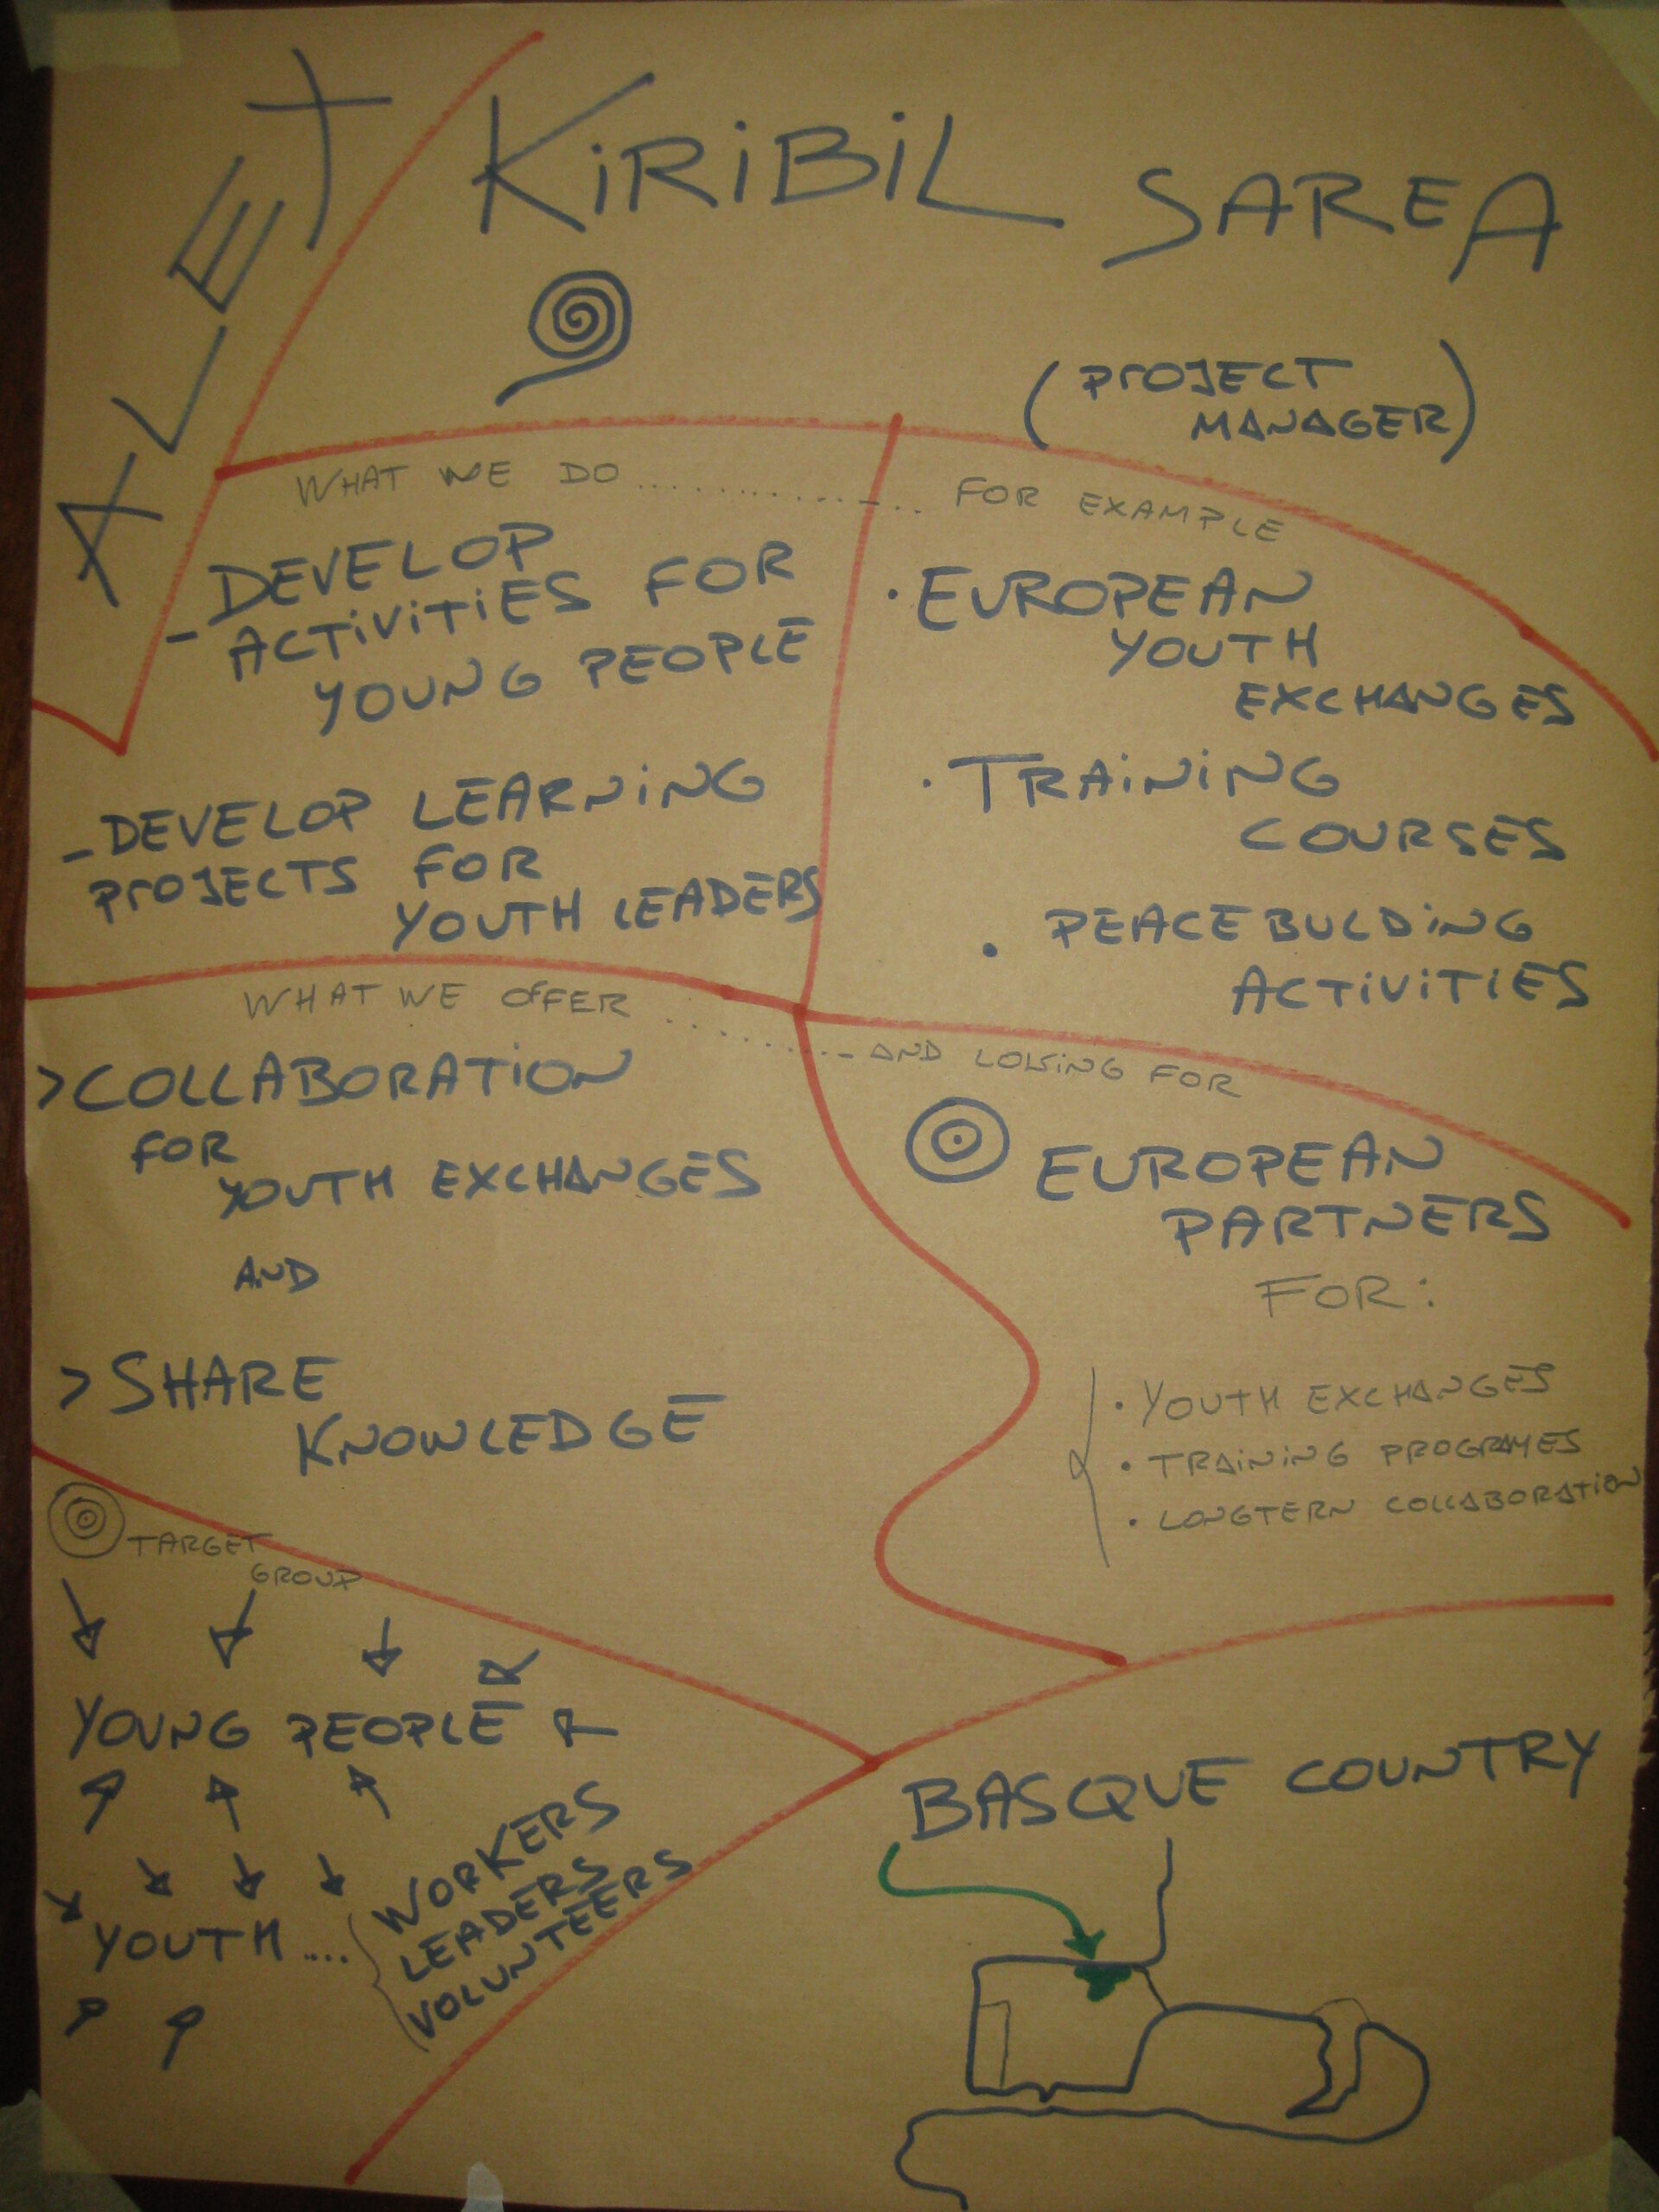 KiRiBiL SAREA
(PROJECT
MANAGER)
WHAT WE DO ................. FOR EXAMPLE
- DEVELOP
ACTiViTiES FOR
YOUNG PEOPLE
- DEVELOP LEARNiNG
PROJECTS FOR
YOUTH LEADERS
· EUROPEAN
YOUTH
EXCHANGES
· TRAiNiNG
COURSES
· PEACEBULDiNG
ACTiViTiES
WHAT WE OFFER ............ AND LOKiNG FOR
> COLLABORATiON
FOR
YOUTH EXCHANGES
AND
> SHARE
KNOWLEDGE
EUROPEAN
PARTNERS
FOR:
· YOUTH EXCHANGES
· TRAiNiNG PROGRAMES
· LONGTERN COLLABORATiON
TARGET
GROUP
YOUNG PEOPLE
YOUTH ....
WORKERS
LEADERS
VOLUNTEERS
BASQUE COUNTRY